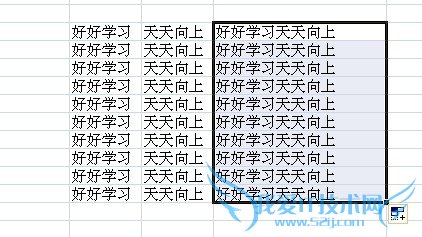 好好学习 天天向上 好好学习天天向上
好好学习 天天向上 好好学习天天向上
好好学习 天天向上 好好学习天天向上
好好学习 天天向上 好好学习天天向上
好好学习 天天向上 好好学习天天向上
好好学习 天天向上 好好学习天天向上
好好学习 天天向上 好好学习天天向上
好好学习 天天向上 好好学习天天向上
好好学习 天天向上 好好学习天天向上
好好学习 天天向上 好好学习天天向上
我爱IT技术网
www.52ij.com